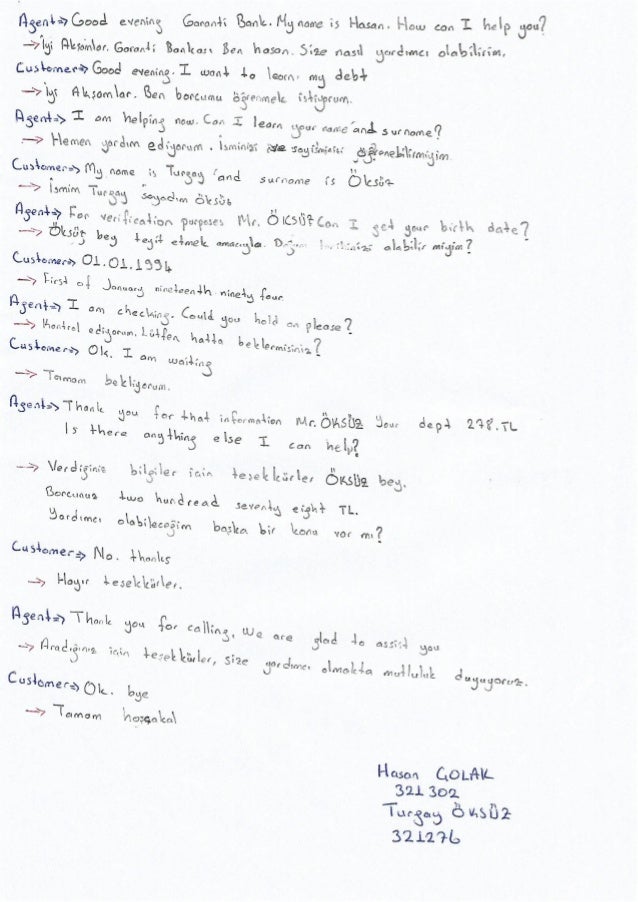 Agent=> Good evening Garanti Bank. My name is Hasan. How can I help you?
→ İyi Akşamlar. Garanti Bankası Ben hasan. Size nasıl yardımcı olabilirim.
Customer=> Good evening. I want to learn my debt
→ İyi Akşamlar. Ben borcumu öğrenmek istiyorum.
Agent=> I am helping now. Can I learn your name and surname?
→ Hemen yardım ediyorum. İsminizi ve soyisminizi öğrenebilirmiyim.
Customer=> My name is Turgay and surname is Öksüz
→ İsmim Turgay soyadım öksüz
Agent=> For verification purposes Mr. ÖKSÜZ Can I get your birth date?
→ Öksüz bey teyit etmek amacıyla. Doğum alabilir miyim?
Customer=> 01.01.1994
→ First of January nineteenth ninety four
Agent=> I am checking. Could you hold on please?
→ Kontrol ediyorum. Lütfen hatta beklermisiniz?
Customer=> Ok. I am waiting
→ Tamam bekliyorum.
Agent=> Thank you for that information Mr. ÖKSÜZ Your dept 278.TL
Is there anything else I can help?
→ Verdiğiniz bilgiler için teşekkürler ÖKSÜZ bey.
Borcunuz two hundread seventy eight TL.
Yardımcı olabileceğim başka bir konu var mı?
Customer=> No. thanks
→ Hayır teşekkürler.
Agent=> Thank you for calling, We are glad to assist you
→ Aradığınız için teşekkürler, size yardımcı olmakta mutluluk duyuyoruz.
Customer=> Ok. bye
→ Tamam hoşçakal
Hasan GOLAK
321302
Turgay ÖKSÜZ
321276